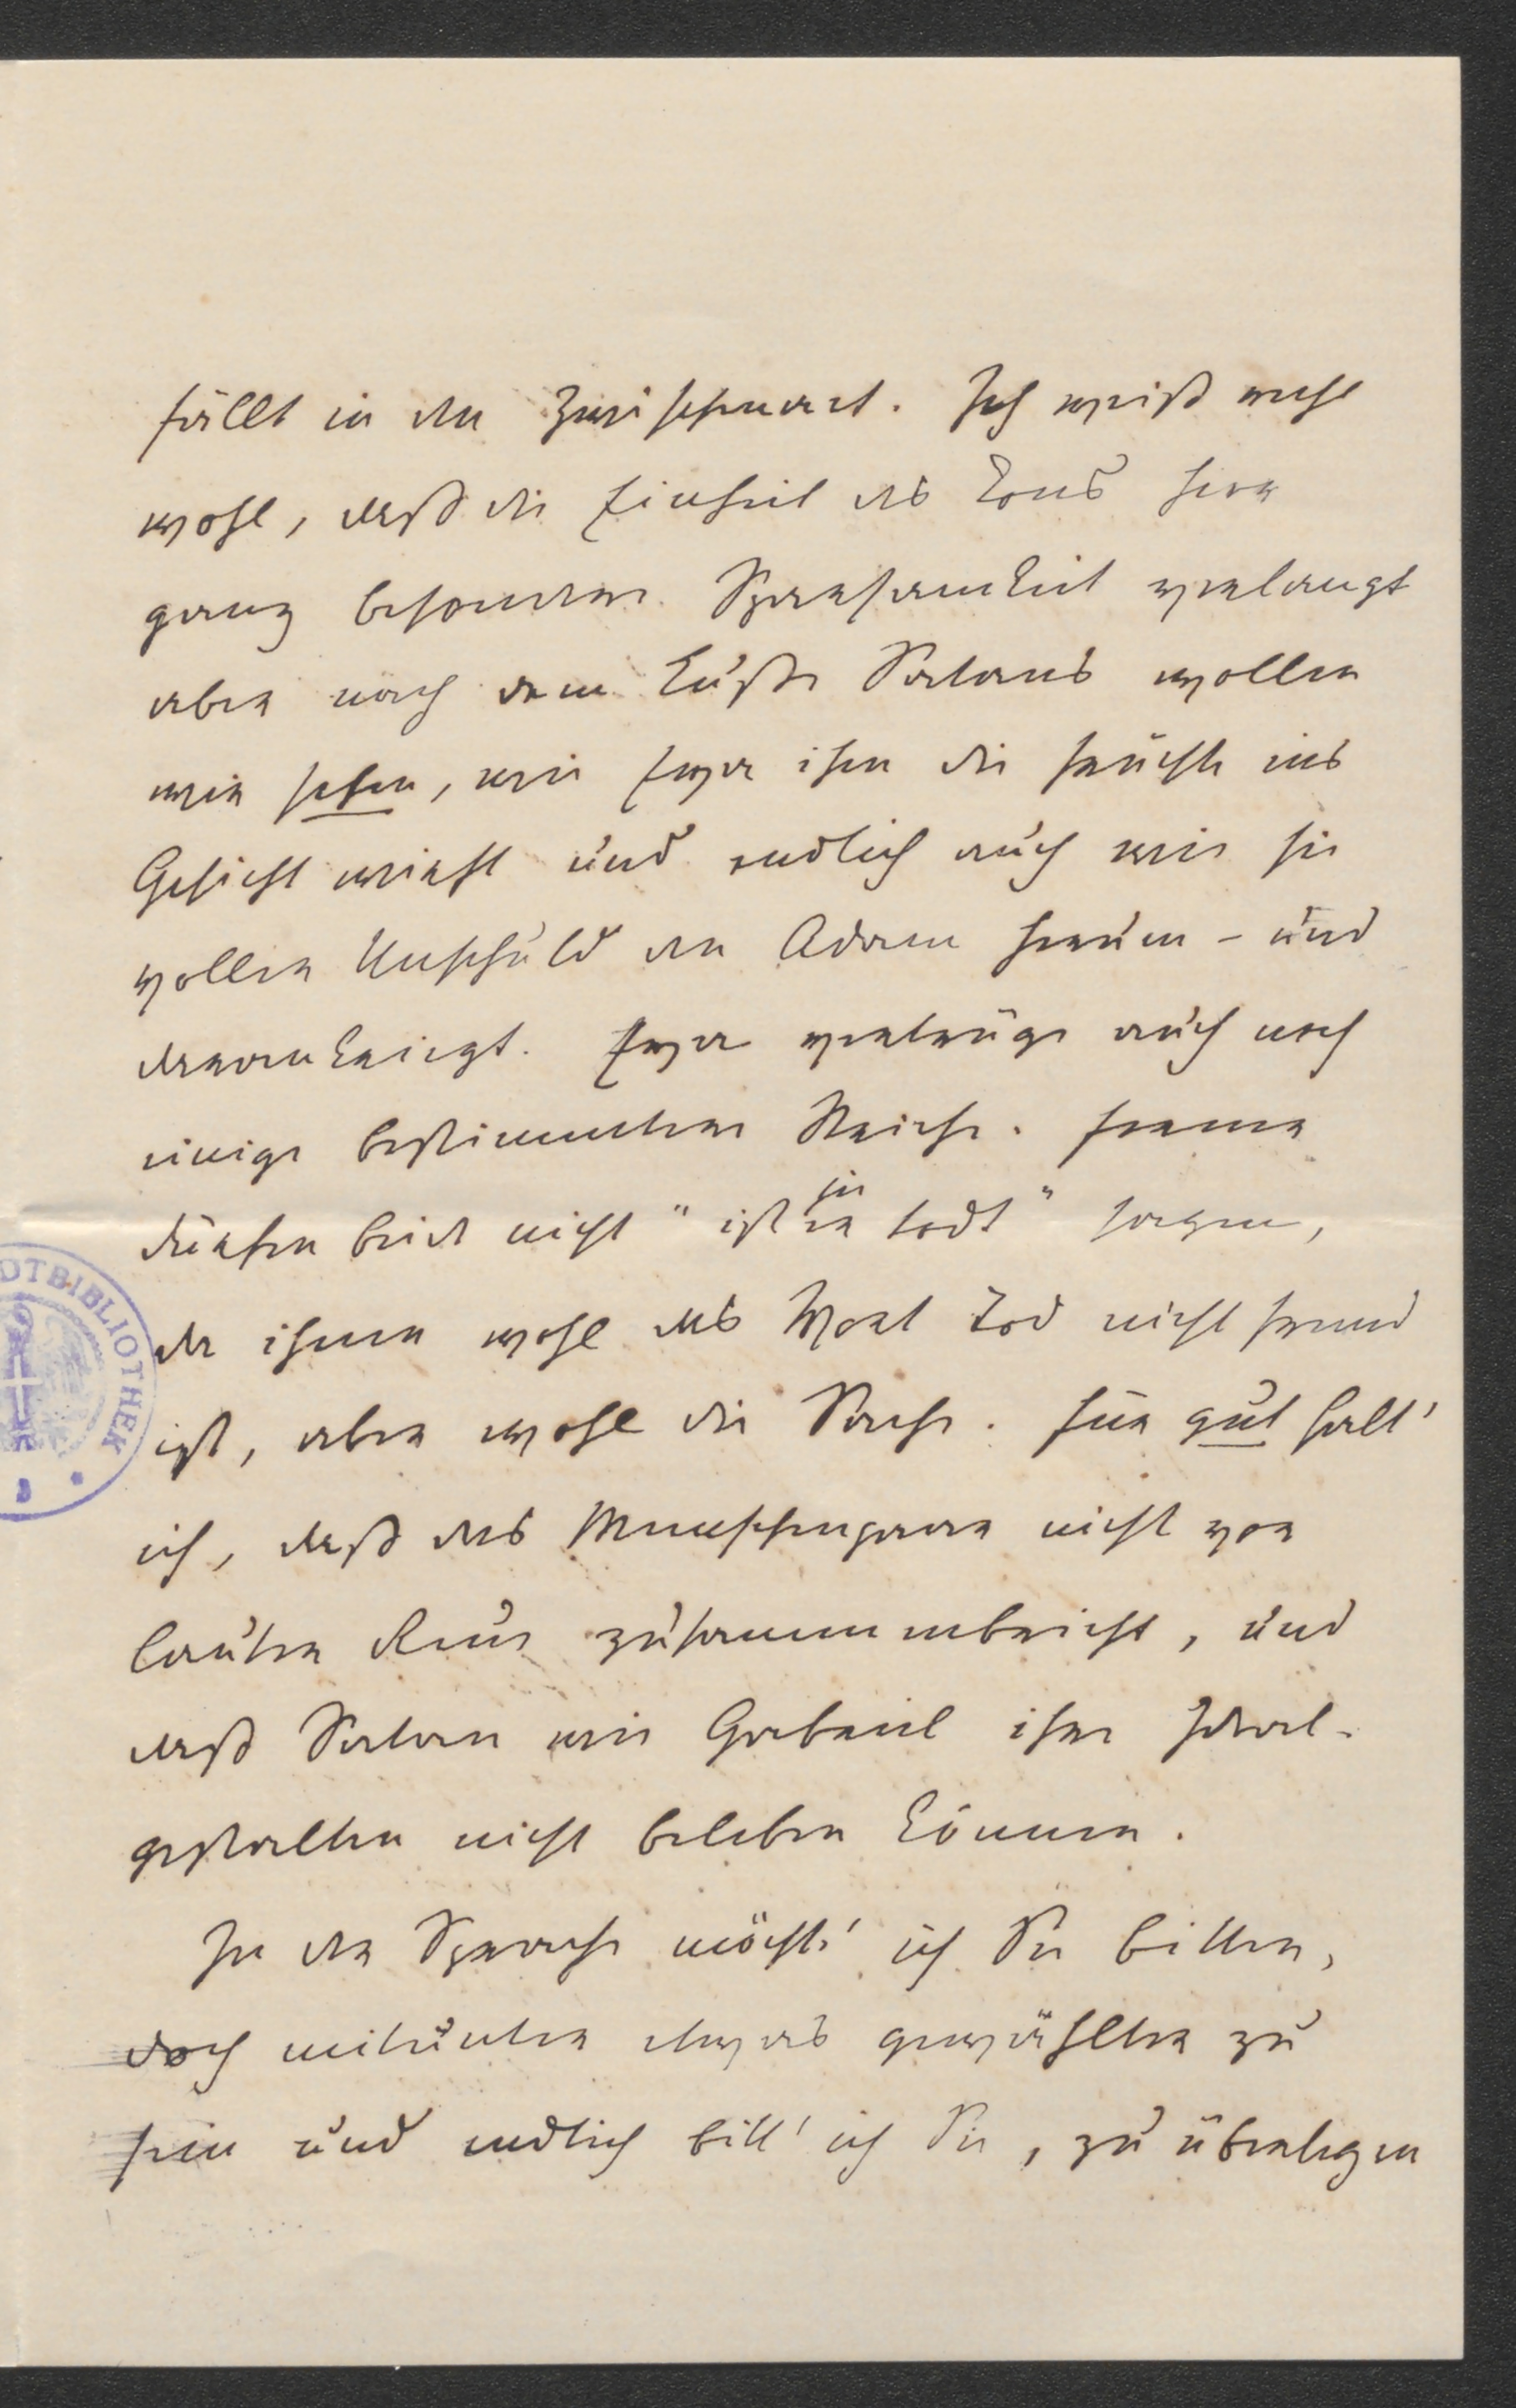 fällt in den Zwischenact. Ich weiß recht
wohl, daß die Einheit des Tons hier
ganz besondere Sparsamkeit verlangt
aber nach dem Kusse Satans wollen
wir sehen, wie Eva ihm die Früchte ins
Gesicht wirft und endlich auch wie sie
voller Unschuld den Adam herum - und
dranenkriegt. Eva vertrüge auch noch
einige bestimmtere Striche. Ferner
dürfen beide nicht "ist sie todt" sagen,
da ihnen wohl das Wort Tod nicht fremd
ist, aber wohl die Sache. Für gut halt'
ich, daß das Menschenpaar nicht vor
lauter Reue zusammenbricht, und
daß Satan wie Gabriel ihre Ideal-
gestalten nicht beleben können.
In der Sprache möcht' ich Sie bitten,
doch mitunter etwas gewählter zu
sein und endlich bitt' ich Sie, zu überlegen
DTBIBLIOTHEK